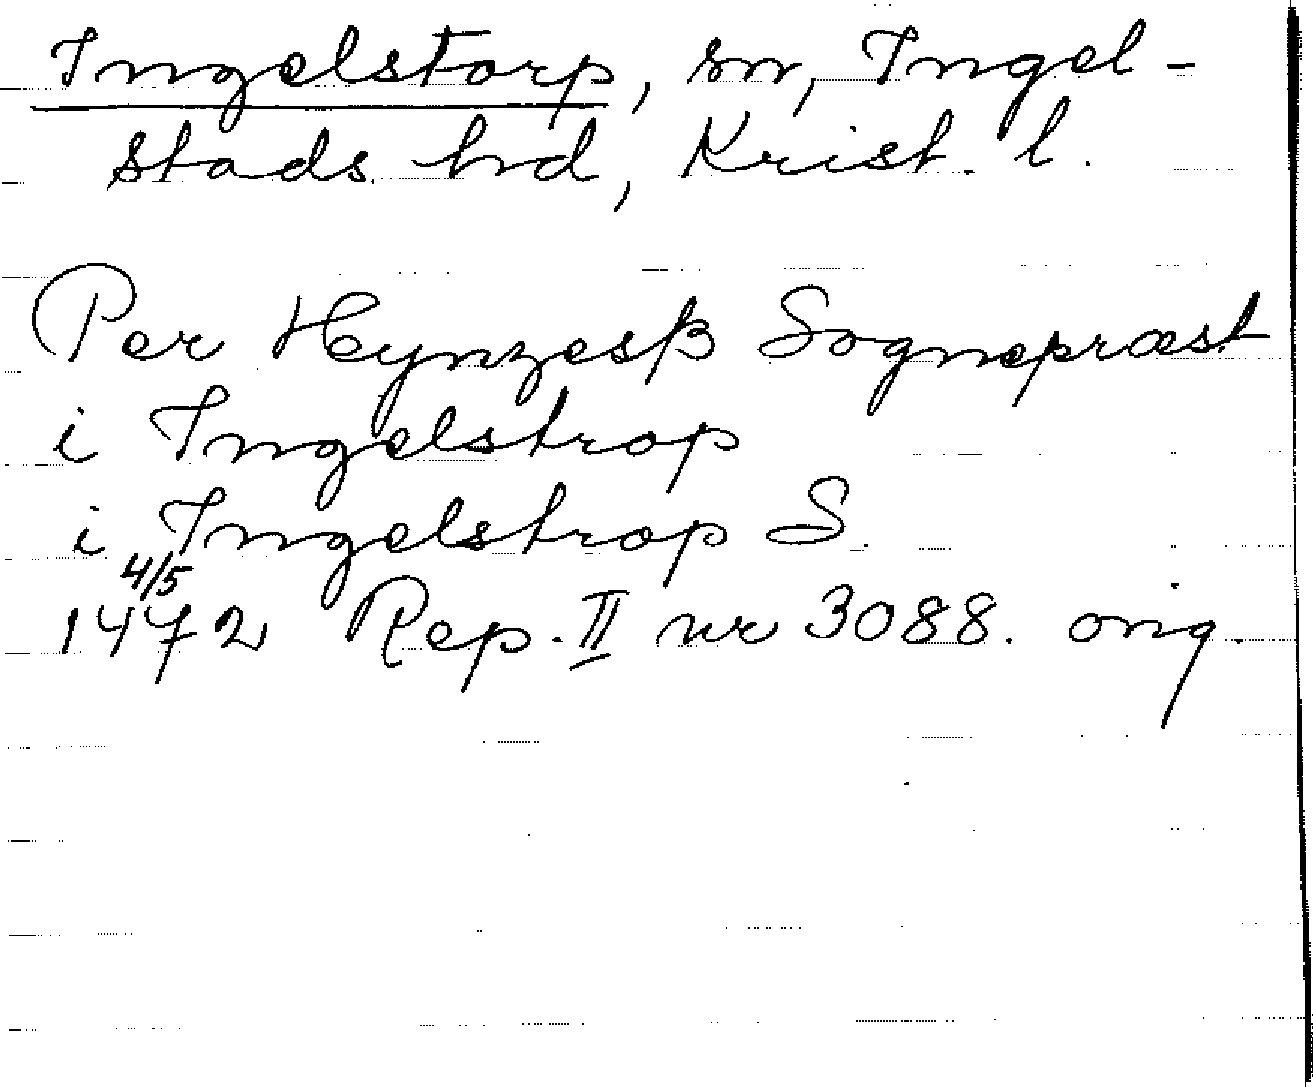 Ingelstorp, sn, Ingel-
stads hd, Krist. l.
Per Heynzesß Sognepræst
i Ingelstrop
i Ingelstrop S.
4/5
1472 Rep. II nr 3088. orig.